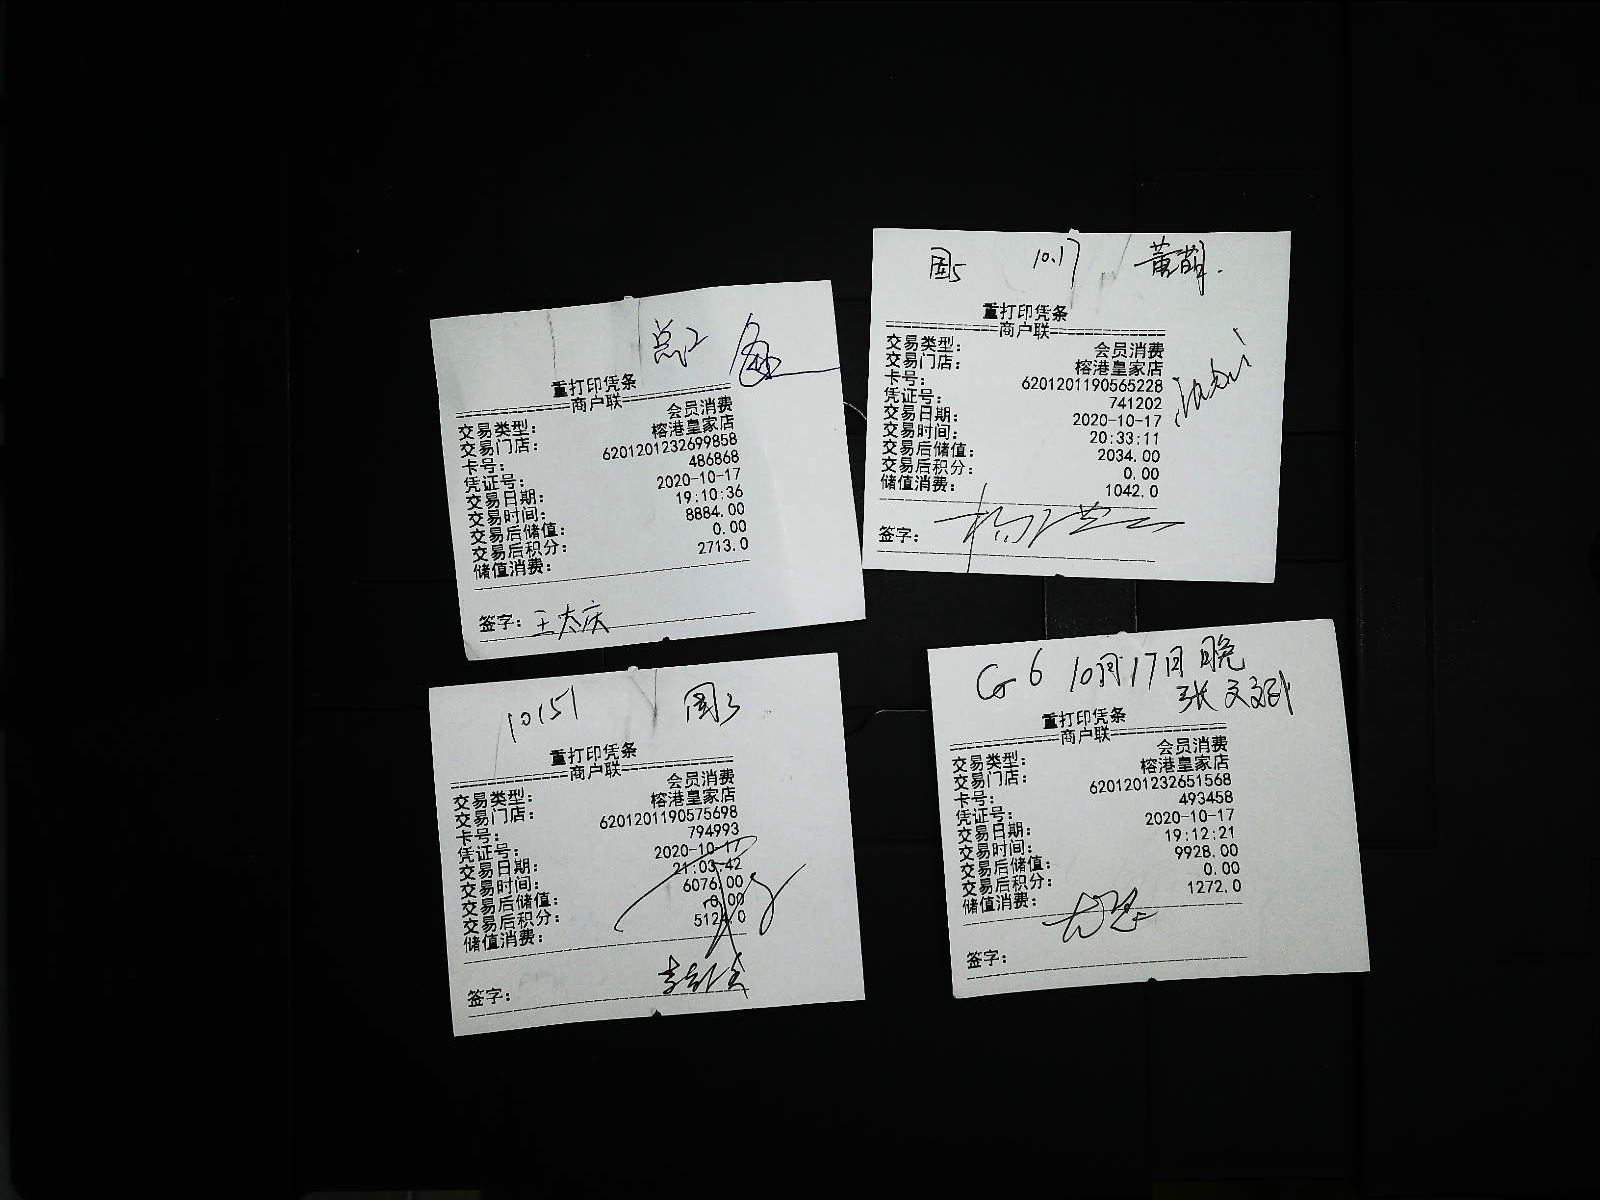 总2
重打印凭条
商户联
交易类型： 会员消费
交易门店： 榕港皇家店
卡号： 6201201232699858
凭证号： 486868
交易日期： 2020-10-17
交易时间： 19:10:36
交易后储值： 8884.00
交易后积分： 0.00
储值消费： 2713.0
签字： 王太庆
国5 10.17 黄萌.
重打印凭条
商户联
交易类型： 会员消费
交易门店： 榕港皇家店
卡号： 6201201190565228
凭证号： 741202
交易日期： 2020-10-17
交易时间： 20:33:11
交易后储值： 2034.00
交易后积分： 0.00
储值消费： 1042.0
签字：
10151 国3
重打印凭条
商户联
交易类型： 会员消费
交易门店： 榕港皇家店
卡号： 6201201190575698
凭证号： 794993
交易日期： 2020-10-17
交易时间： 21:03:42
交易后储值： 6076.00
交易后积分： 0.00
储值消费： 5124.0
签字：
G6 10月17日晚
张
重打印凭条
商户联
交易类型： 会员消费
交易门店： 榕港皇家店
卡号： 6201201232651568
凭证号： 493458
交易日期： 2020-10-17
交易时间： 19:12:21
交易后储值： 9928.00
交易后积分： 0.00
储值消费： 1272.0
签字：